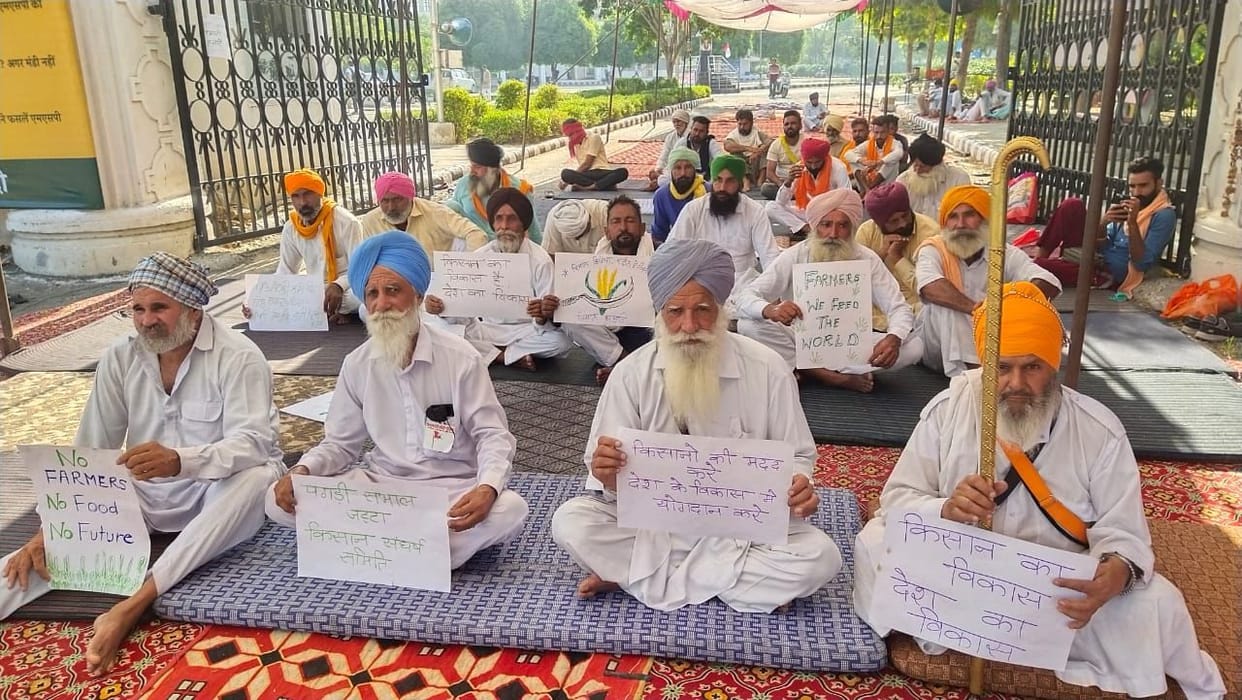 एमएसपी
? अगर मंडी नहीं
नि फसलें एमएसपी
किसान का
विकास है
देश का विकास
FARMERS
WE FEED
THE
WORLD
No
FARMERS
No Food
No Future
पगड़ी सम्भाल
जट्टा
किसान संघर्ष
समिति
किसानो की मदद
करे
देश के विकास मे
योगदान करे
किसान का
विकास
देश का
विकास